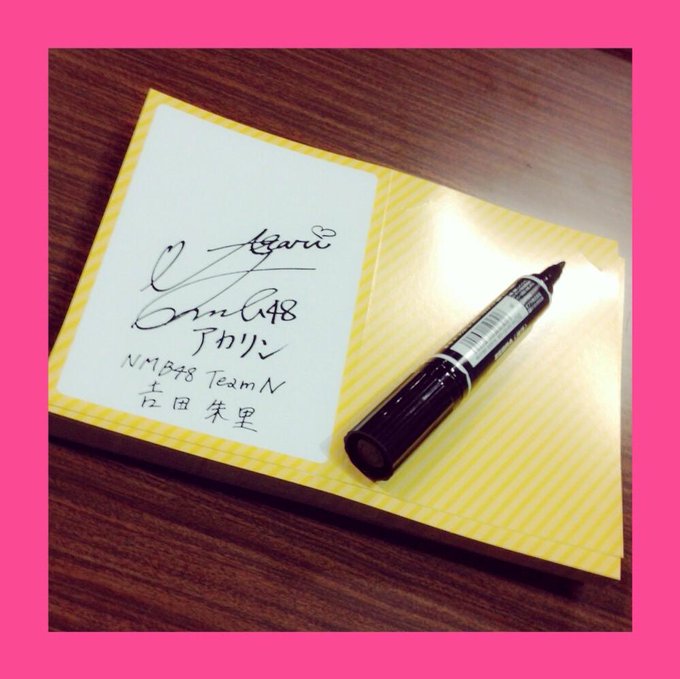 Agari
nmb48
アカリン
NMB48 TeamN
吉田朱里